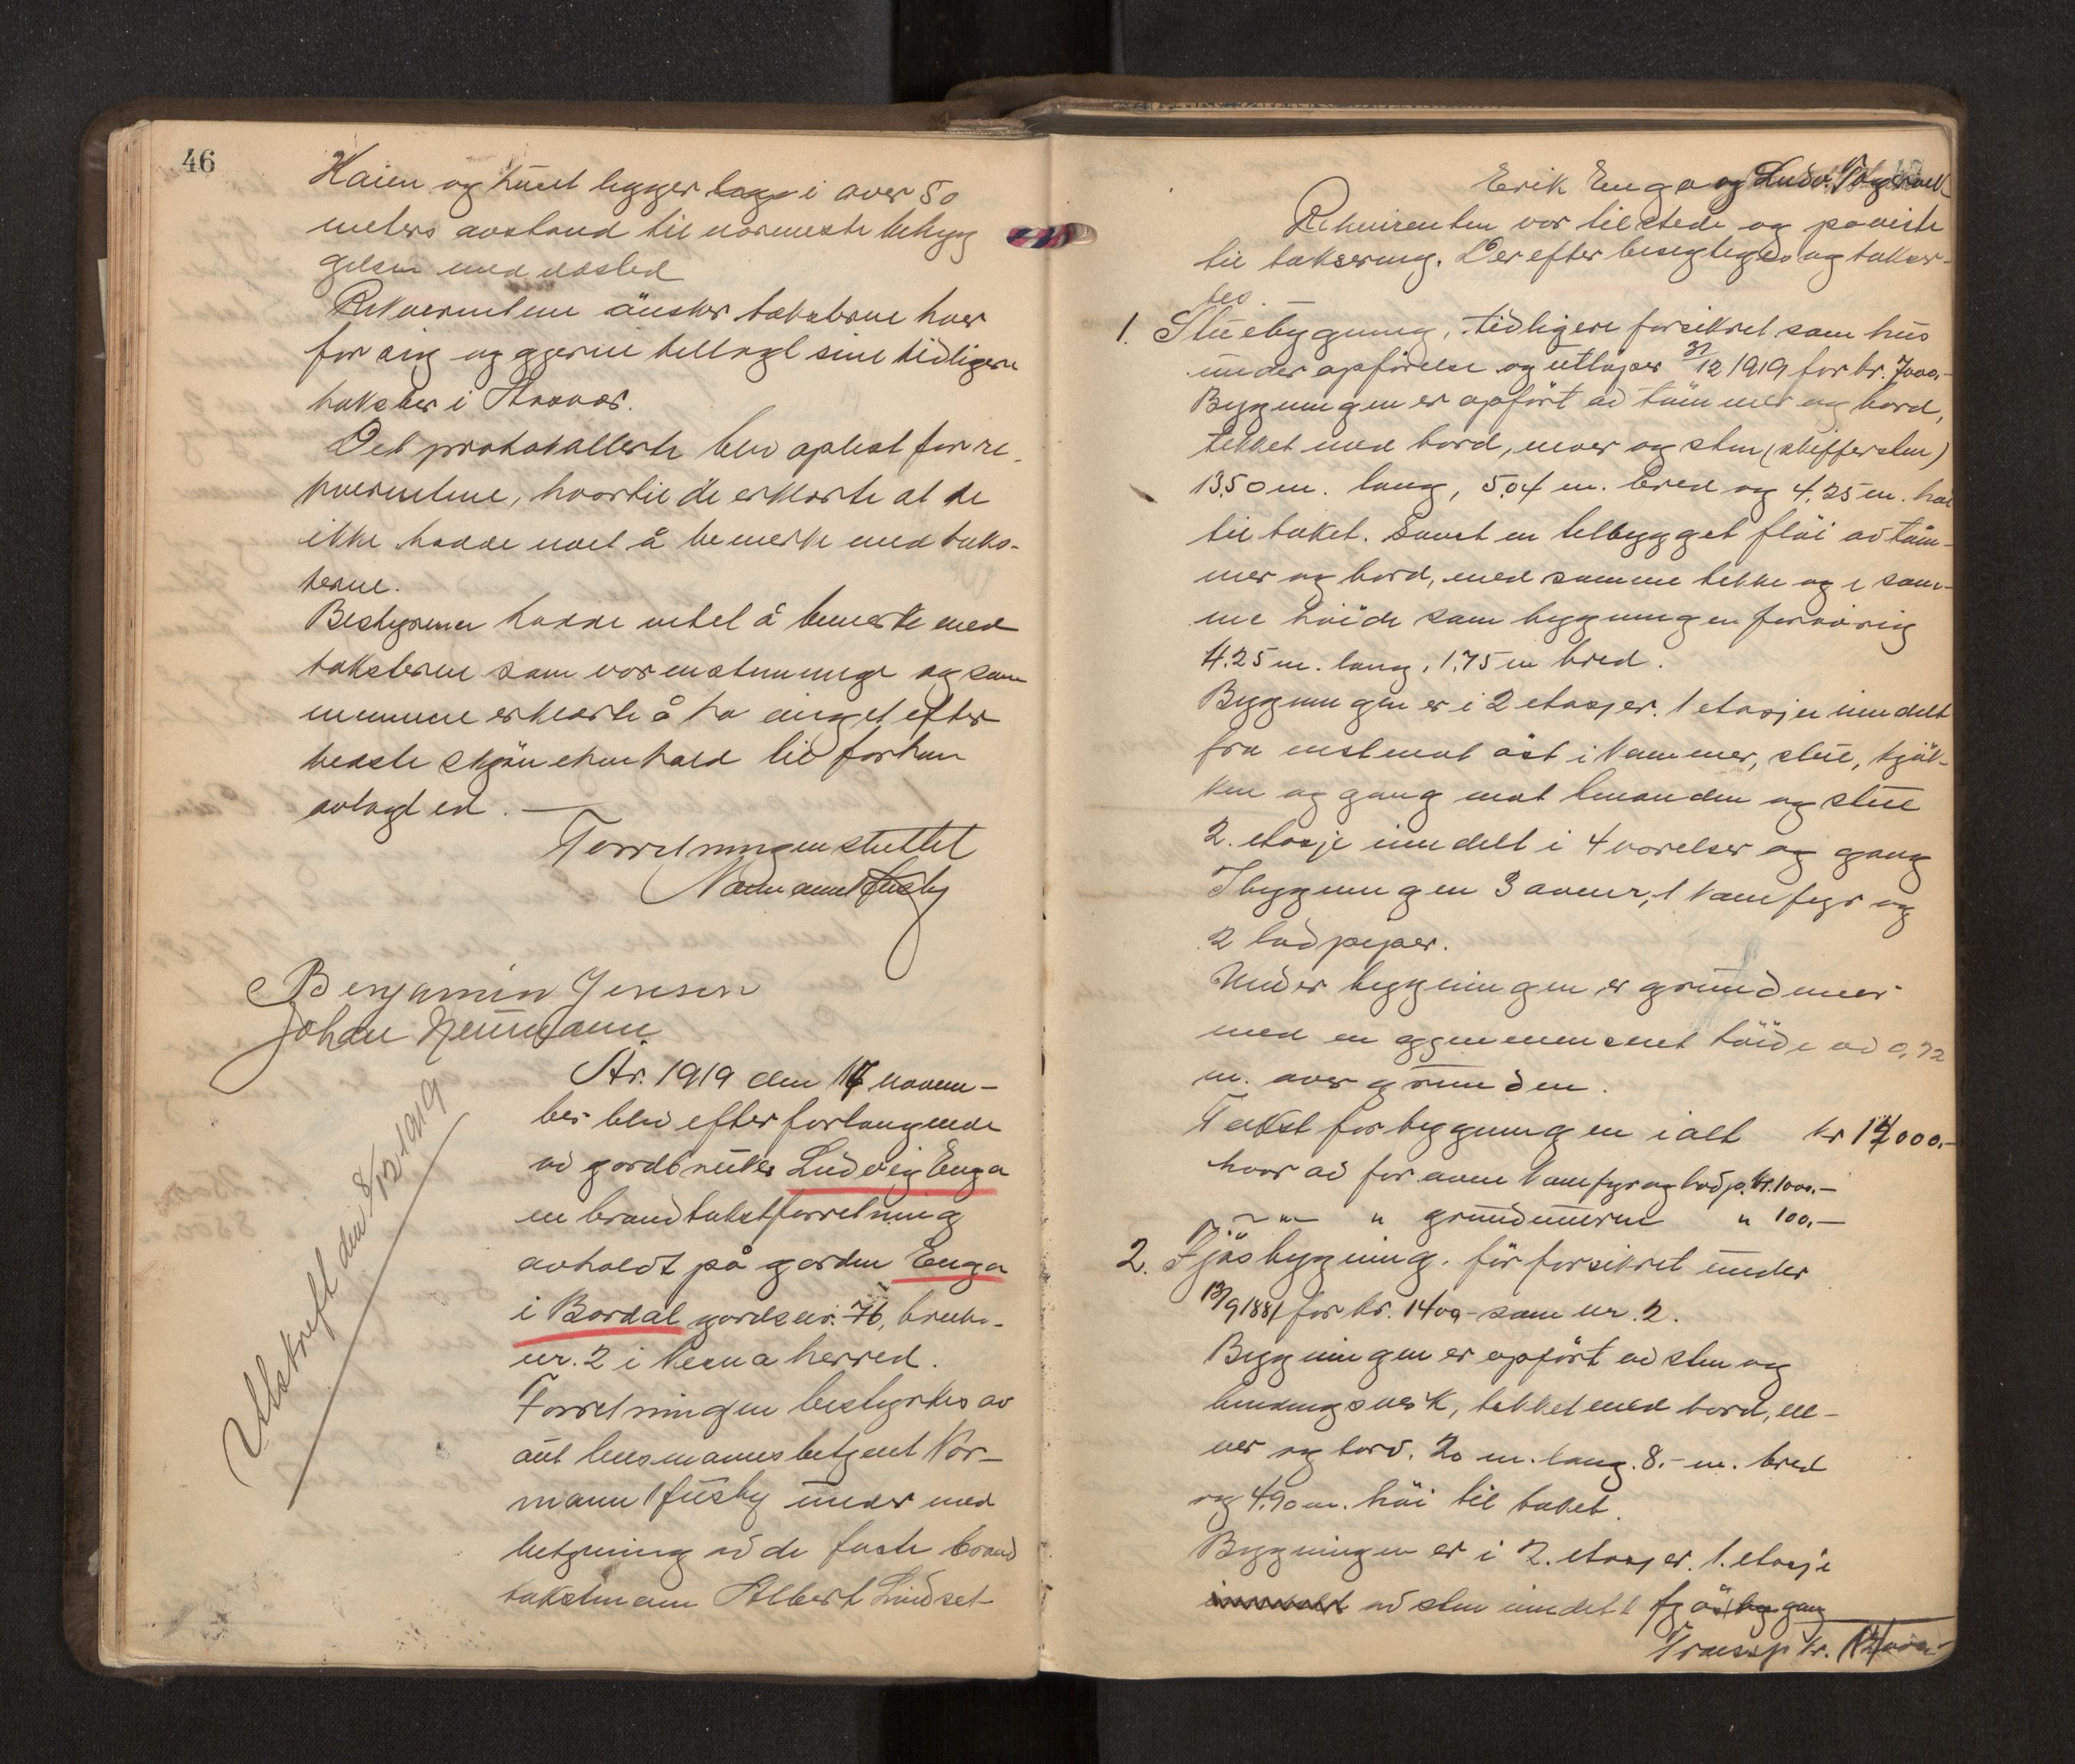 46
Kaien og huset ligger begge i over 50
meters avstand til nærmeste bebyg
gelse med ildsted
Rekvirentene ønsker taksterne hver
for sig og gjerne tillagt sine tidligere
takster i
Det protokollerte blev oplest for re-
kvirentene, hvortil de erklærte at de
ikke hadde noet å bemerke med taks-
terne.
Bestyreren hadde intet å bemerke med
taksterne som var enstemmige og som
mennene erklærte å ha avgit efter
bedste skjøn i henhold til forhen
avlagt ed. —
Forretningen sluttet
Normann Husby
Benjamin Jensen
Johan Neumann.
År. 1919 den 17 novem-
ber blev efter forlangende
av gardbruker Ludvig Enga
en brandtakstforretning
avholdt på garden Enga
i Bordal gardsnr. 76, bruks-
nr. 2 i herred.
Forretningen bestyrtes av
aut lensmannsbetjent Nor-
mann Husby under med
betjening av de faste brand
takstmenn Albert Lindset
Utskreft den 8/12 1919
Erik Enga og Ludv.
Rekvirenten var tilstede og paviste
til taksering. Derefter besigtigedes og takser-
tes.
1. Stuebygning, tidligere forsikret som hus
under opførelse og utløper 31/12 1919 for kr. 7000.-
Bygningen er opført av tømmer og bord,
tekket med bord, never og sten (skiffersten)
13,50 m. lang, 5,04 m. bred og 4,25 m. høi
til taket. Samt en tilbygget fløi av tøm-
mer og bord, med samme tekke og i sam-
me høide som bygningen forøvrig
4.25 m. lang, 1,75 m bred.
Bygningen er i 2 etasjer. 1 etasje inndelt
fra vest mot øst i kammer, stue, kjøk-
ken og gang mot hinanden og stue
2. etasje inndelt i 4 værelser og gang
I bygningen 3 ovner, 1 komfyr og
2 lødpiper.
Under bygningen er grundmur
med en gjennemsnit høide av 0,72
m. over grunden.
Takst for bygningen ialt kr 12000.-
hvor av for ovne komfyr og lødp. kr. 1000.-
— " — " grundmuren " 100.-
2. Fjøsbygning. før forsikret under
13/9 1881 for kr. 1400 - som nr. 2.
Bygningen er opført av sten og
bindingsverk, tekket med bord, ne-
ver og torv. 20 m. lang. 8.- m. bred
og 4,90 m. høi til taket.
Bygningen er i 2. etasjer. 1. etasje
av sten inndelt i fjøs, gang
Transp kr. 12000.-